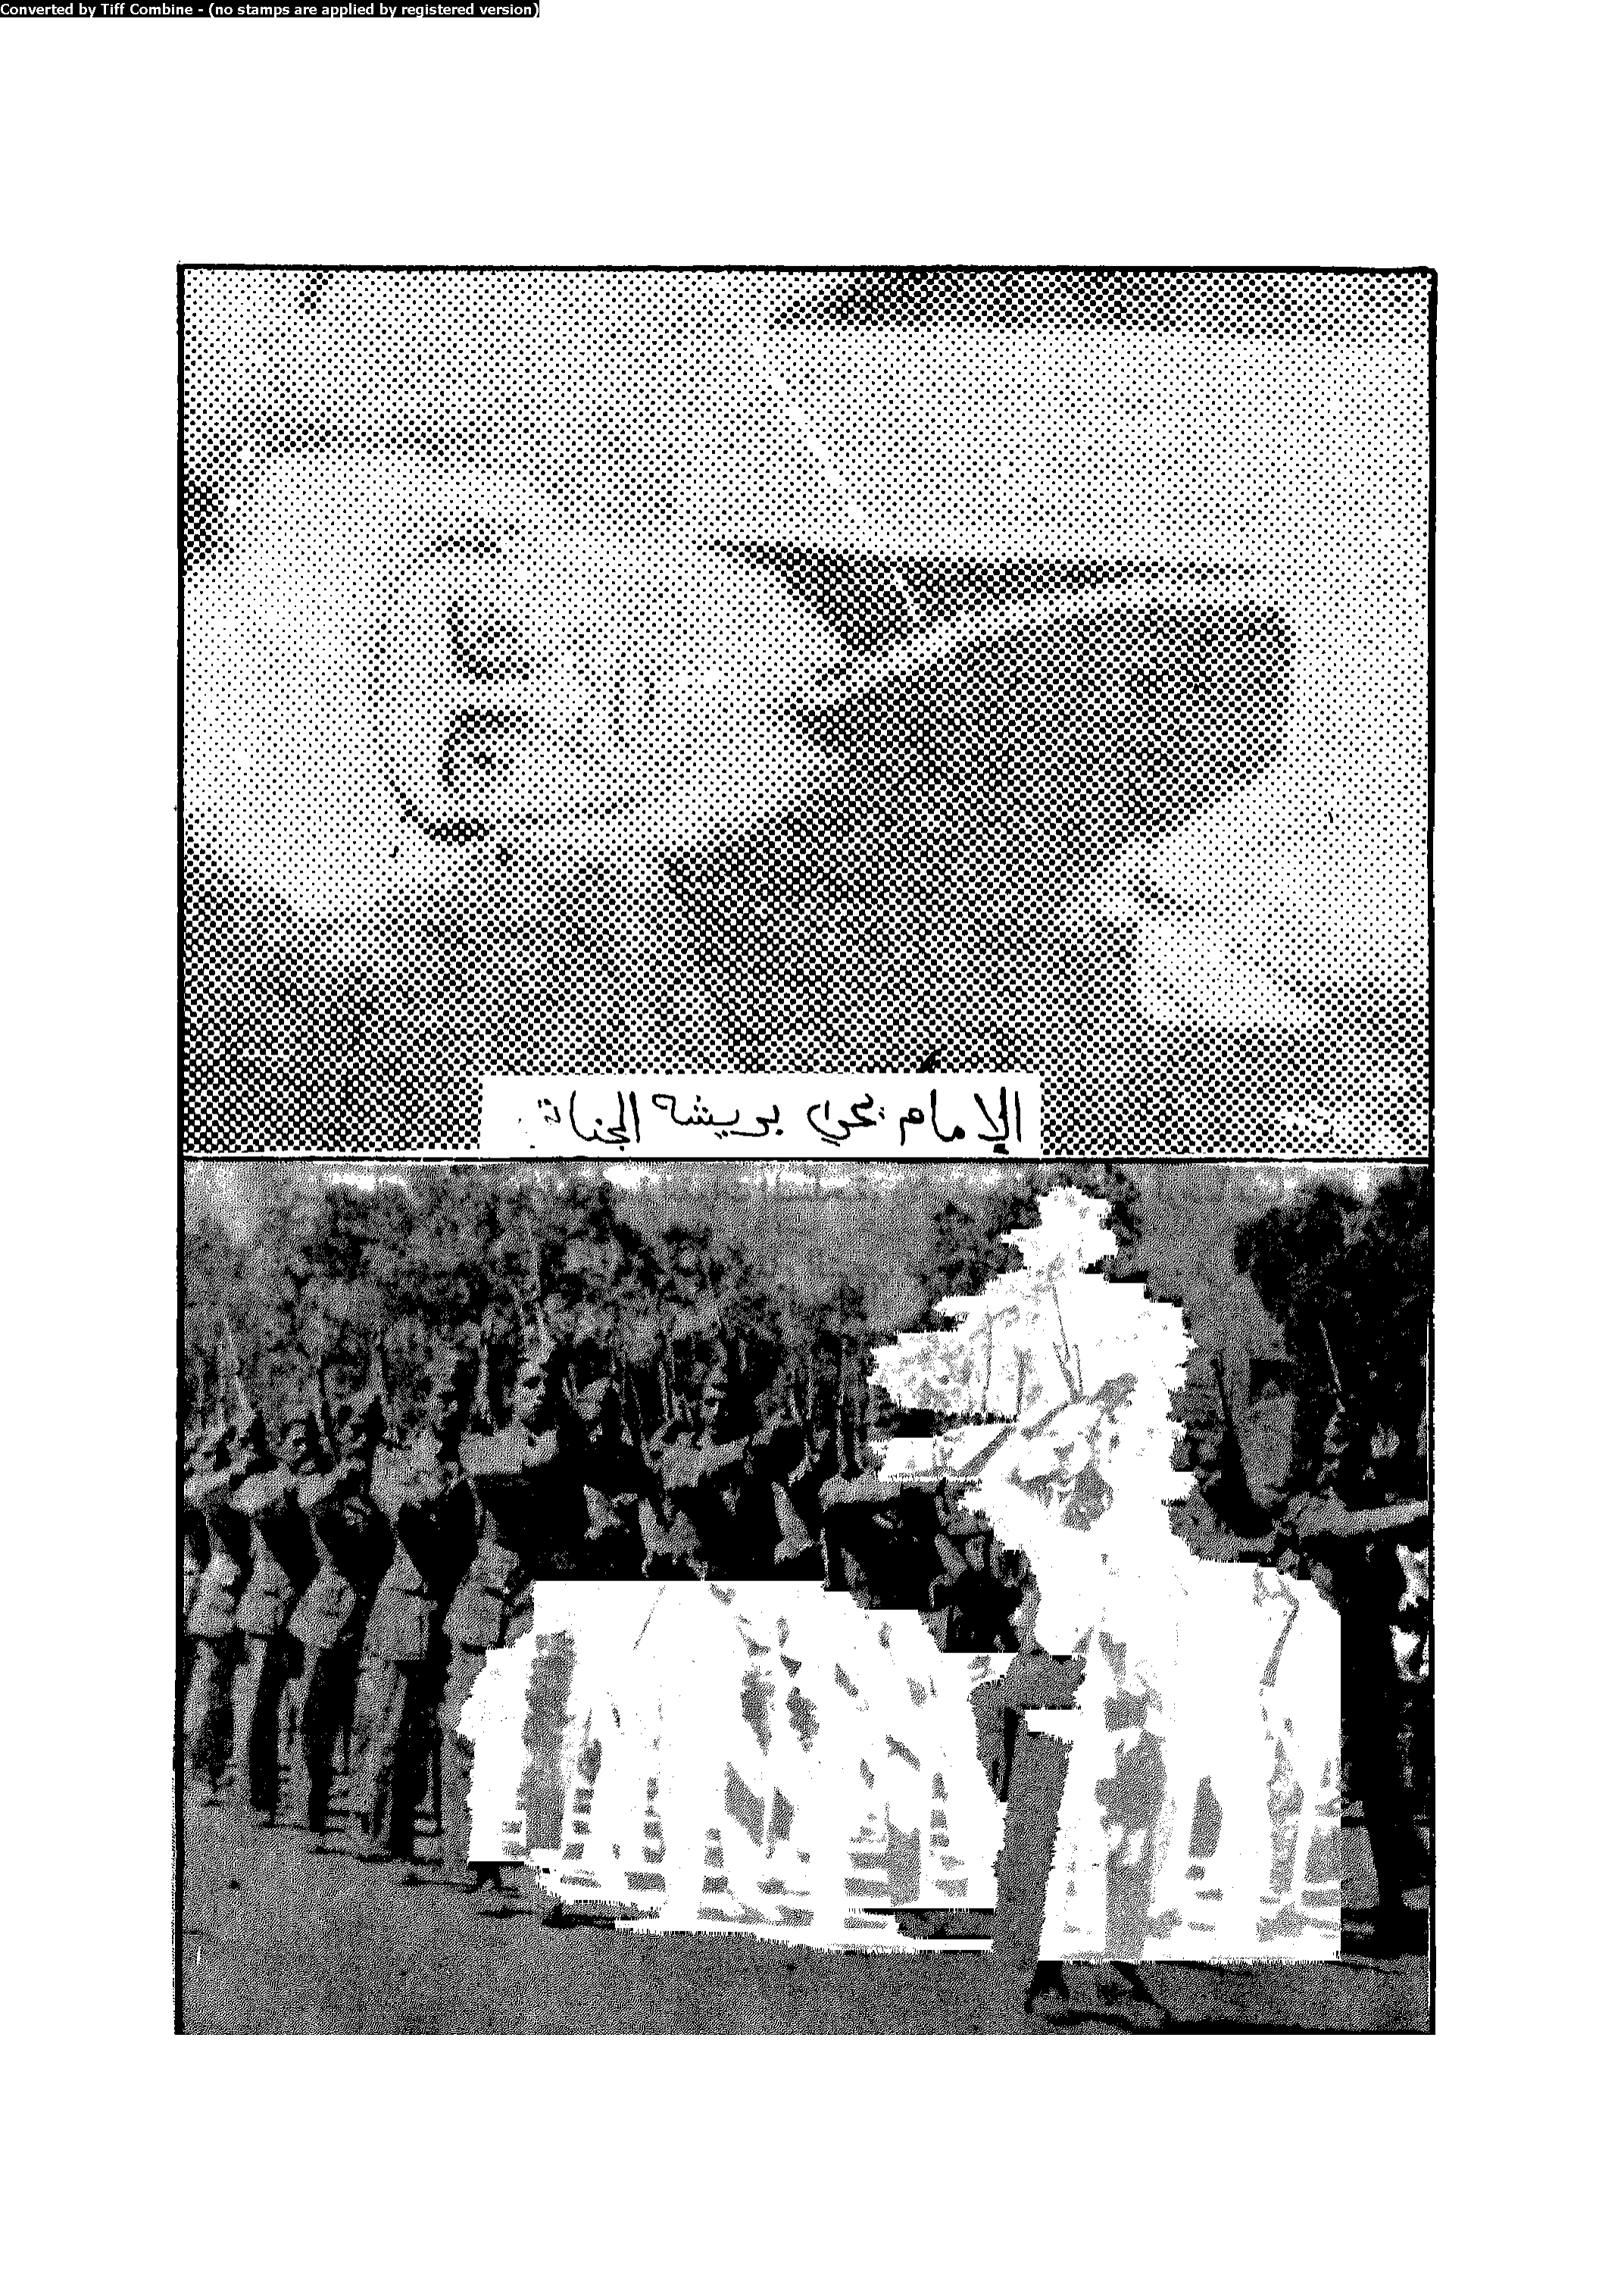 Converted by Tiff Combine - (no stamps are applied by registered version)
الإمام يحيى بريشه